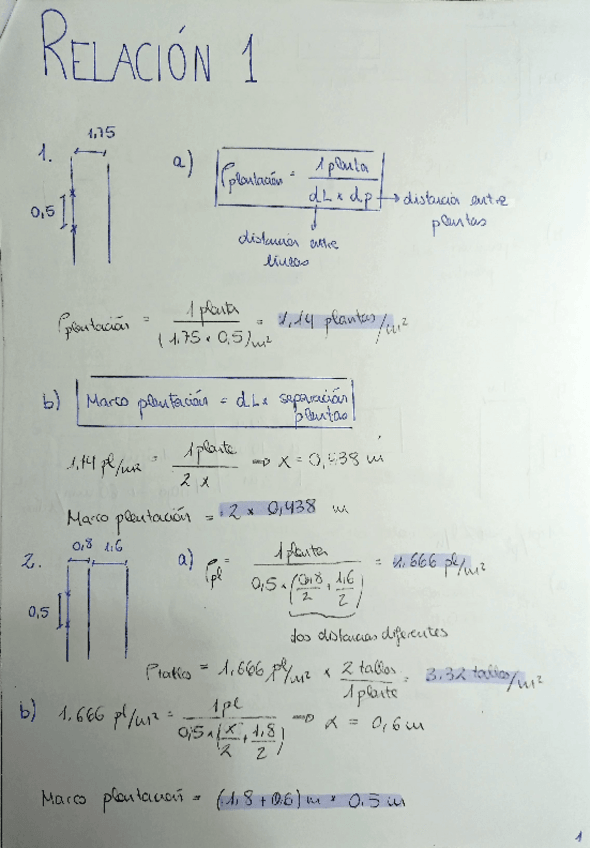 RELACIÓN 1
1,75
1.
0,5
a) ρplantación = 1 planta / dL × dp → distancia entre plantas
distancia entre líneas
ρplantación = 1 planta / (1,75 × 0,5) m² = 1,14 plantas/m²
b) Marco plantación = dL × separación plantas
1,14 pl/m² = 1 planta / 2 x ⇒ x = 0,438 m
Marco plantación = 2 × 0,438 m
0,8 1,6
2.
0,5
a) ρpl = 1 planta / 0,5 × (0,8/2 + 1,6/2) = 1.666 pl/m²
dos distancias diferentes
ρtallos = 1.666 pl/m² × 2 tallos / 1 planta = 3.32 tallos/m²
b) 1.666 pl/m² = 1 pl / 0,5 × (x/2 + 1,8/2) ⇒ x = 0,6 m
Marco plantación = (1,8 + 0,6) m × 0,5 m
1